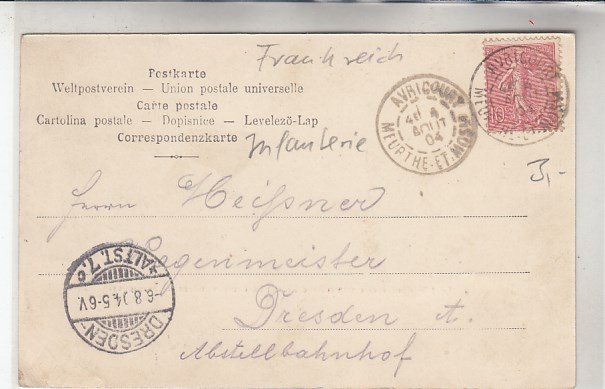 Frankreich
Postkarte
Weltpostverein — Union postale universelle
Carte postale
Cartolina postale — Dopisnice — Levelező-Lap
Correspondenzkarte
Infanterie
AVRICOURT
4 AOUT 04
MEURTHE-ET-MOS
AVRICOURT
10
3,-
Herrn Heißner
Wagenmeister
Dresden A.
Abstellbahnhof
*ALTST. 7. c
-6.8.04.5-6V.
DRESDEN-